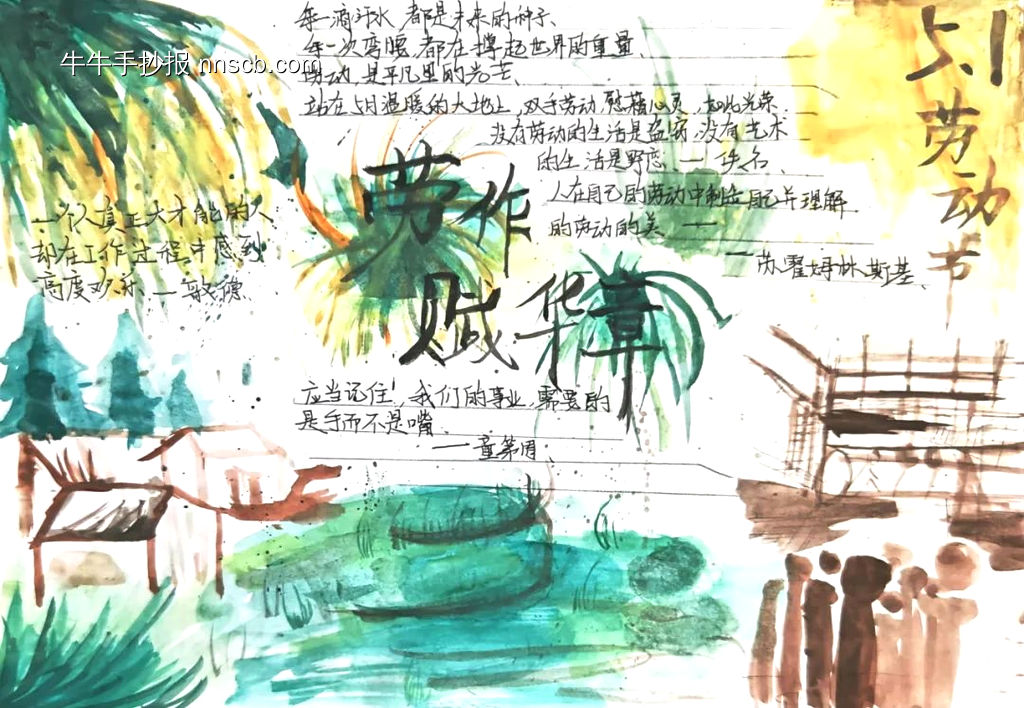 每一滴汗水，都是未来的种子、
每一次弯腰，都在撑起世界的重量、
牛牛手抄报 nnscb.com
劳动，是平凡里的光芒、
站在5月温暖的大地上，双手劳动，慰藉心灵，如此光荣
没有劳动的生活是盗窃，没有艺术
的生活是野蛮 — 铁石
人在自己的劳动中制造自己并理解
的劳动的美 —
—苏霍姆林斯基、
5.1
劳动节
劳作
赋华章
一个人真正大才能的人
却在工作过程中感到
高度欢乐、—歌德
应当记住！我们的事业，需要的
是手而不是嘴
—童第周、